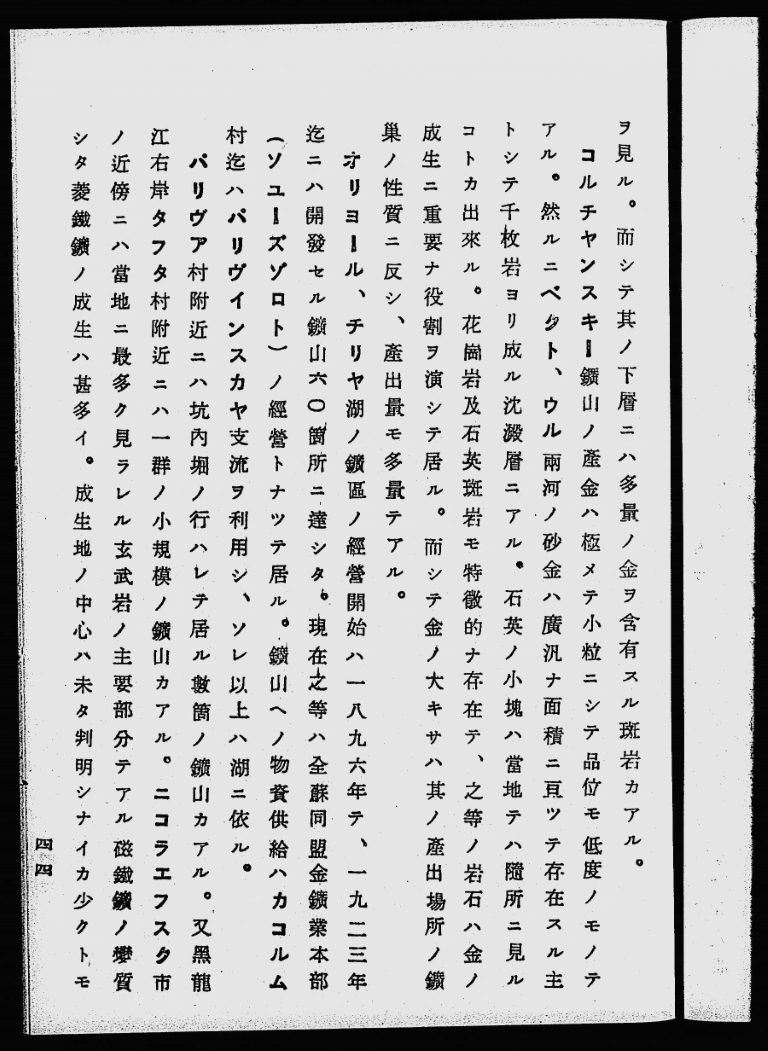 ヲ見ル。而シテ其ノ下層ニハ多量ノ金ヲ含有スル斑岩カアル。
コルチヤンスキー鑛山ノ產金ハ極メテ小粒ニシテ品位モ低度ノモノテ
アル。然ルニベクト、ウル兩河ノ砂金ハ廣汎ナ面積ニ亘ツテ存在スル主
トシテ千枚岩ヨリ成ル沈澱層ニアル。石英ノ小塊ハ當地テハ隨所ニ見ル
コトカ出來ル。花崗岩及石英斑岩モ特徵的ナ存在テ、之等ノ岩石ハ金ノ
成生ニ重要ナ役割ヲ演シテ居ル。而シテ金ノ大キサハ其ノ產出場所ノ鑛
巢ノ性質ニ反シ、產出量モ多量テアル。
オリヨール、チリヤ湖ノ鑛區ノ經營開始ハ一八九六年テ、一九二三年
迄ニハ開發セル鑛山六〇箇所ニ達シタ。現在之等ハ全蘇同盟金鑛業本部
(ソユーズゾロト)ノ經營トナツテ居ル。鑛山ヘノ物資供給ハカコルム
村迄ハパリヴインスカヤ支流ヲ利用シ、ソレ以上ハ湖ニ依ル。
パリヴア村附近ニハ坑內堀ノ行ハレテ居ル數箇ノ鑛山カアル。又黑龍
江右岸タフタ村附近ニハ一群ノ小規模ノ鑛山カアル。ニコラエフスク市
ノ近傍ニハ當地ニ最多ク見ラレル玄武岩ノ主要部分テアル磁鐵鑛ノ變質
シタ菱鐵鑛ノ成生ハ甚多イ。成生地ノ中心ハ未タ判明シナイカ少クトモ
四四